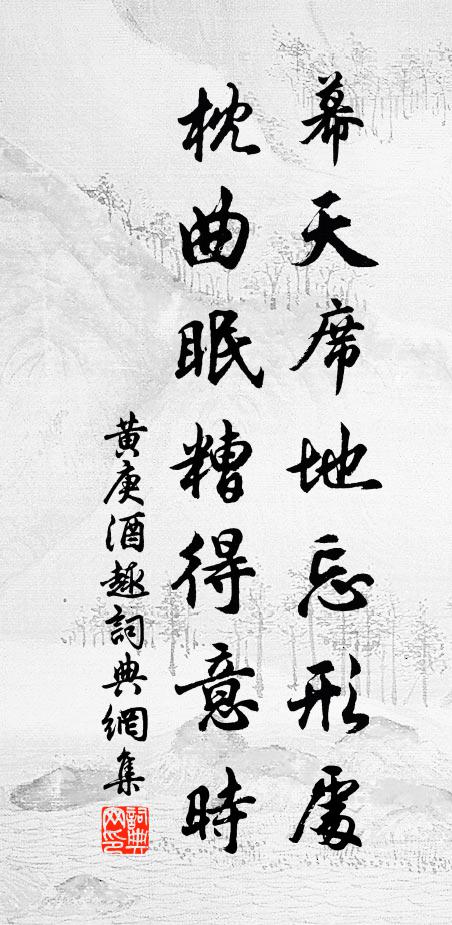 幕天席地忘形處
枕曲眠糟得意時
黃庚酒趣詞典網集
詞典
网印